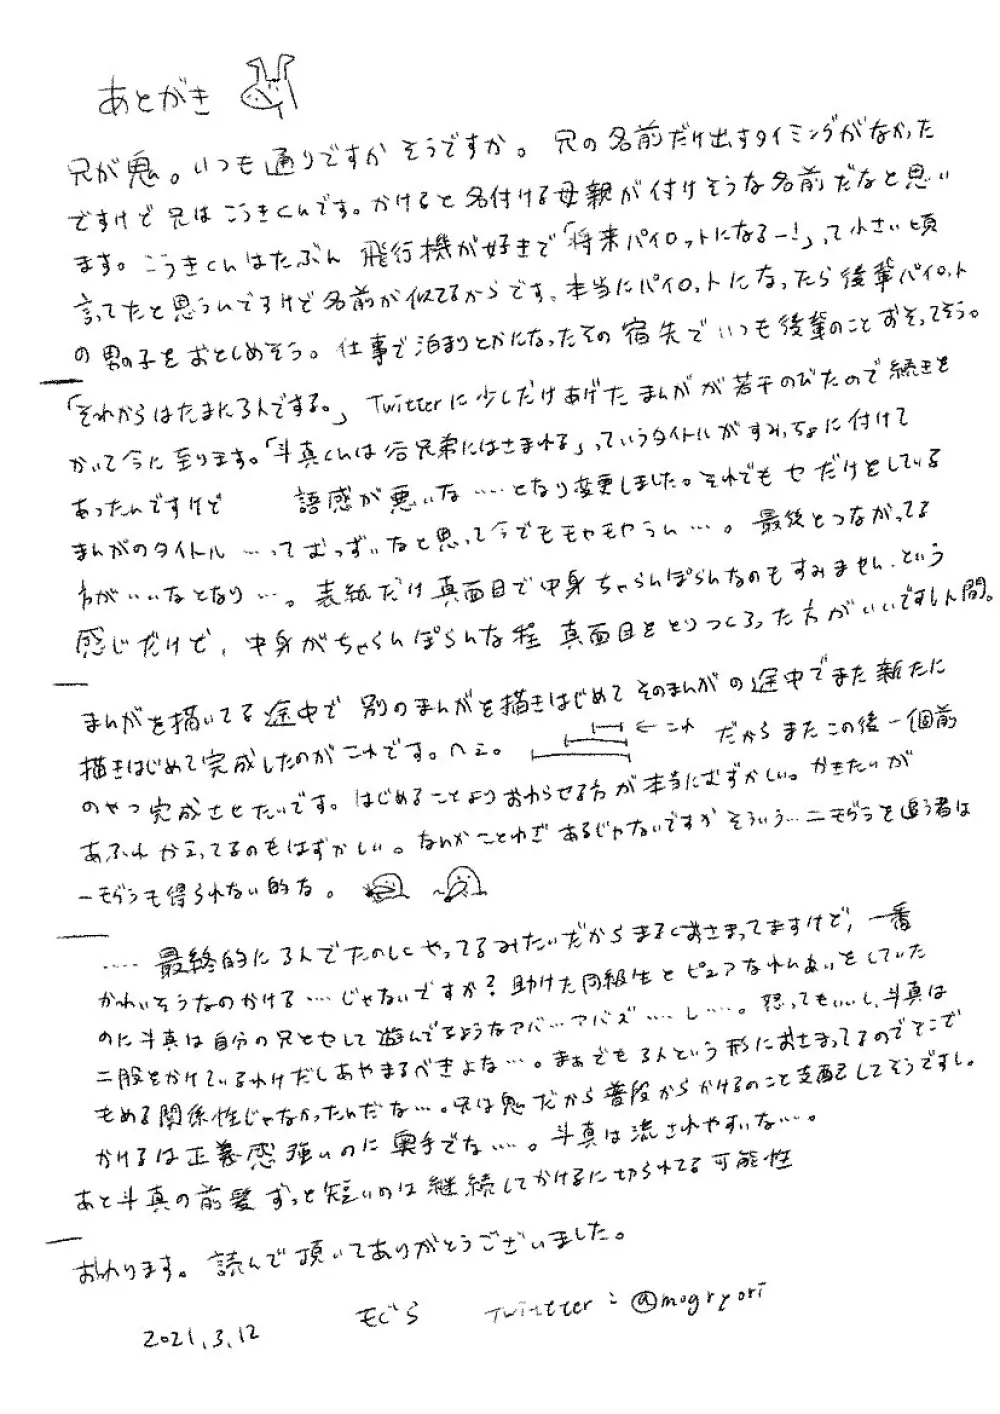 あとがき
兄が鬼。いつも通りですかそうですか。兄の名前だけ出すタイミングがなかった
ですけど兄はこうきくんです。かけると名付ける母親が付けそうな名前だなと思い
ます。こうきくんはたぶん飛行機が好きで「将来パイロットになるー!」って小さい頃
言ってたと思うんですけど名前が似てるからです。本当にパイロットになったら後輩パイロット
の男の子をおとしめそう。仕事で泊まりとかになったその宿先でいつも後輩のことおそってそう。
「それからはたまに3人でする。」Twitterに少しだけあげたまんがが若干のびたので続きを
かいて今に至ります。「斗真くんは谷兄弟にはさまれる」っていうタイトルがすみっちょに付けて
あったんですけど 語感が悪いな……となり変更しました。それでもセだけをしている
まんがのタイトル…ってむっずいなと思って今でももやもやうん…。最後とつながってる
方がいいなとなり…。表紙だけ真面目で中身ちゃらんぽらんなのもすみません、という
感じだけど、中身がちゃらんぽらんな程真面目をとりつくろった方がいいですし人間。
まんがを描いてる途中で別のまんがを描きはじめてそのまんがの途中でまた新たに
描きはじめて完成したのがこれです。へぇ。 ←これ だからまたこの後一個前
のやつ完成させたいです。はじめることよりおわらせる方が本当にむずかしい。かきたいが
あふれかえってるのもはずかしい。なんかことわざあるじゃないですかそういう…二モグラを追う者は
一モグラも得られない的な。
……最終的に3人でたのしくやってるみたいだからまるくおさまってますけど、一番
かわいそうなのかける…じゃないですか?助けた同級生とピュアなれんあいをしていた
のに斗真は自分の兄とセして遊んでるようなアバ…アバズ……し……。怒ってもいいし、斗真は
二股をかけているわけだしあやまるべきよな…。まぁでも3人という形におさまってるのでそこで
もめる関係性じゃなかったんだな…。兄は鬼だから普段からかけるのこと支配してそうですし。
かけるは正義感強いのに奥手でな…。斗真は流されやすいな…。
あと斗真の前髪ずっと短いのは継続してかけるに切られてる可能性
おわります。読んで頂いてありがとうございました。
2021.3.12 もぐら Twitter:@mogryori